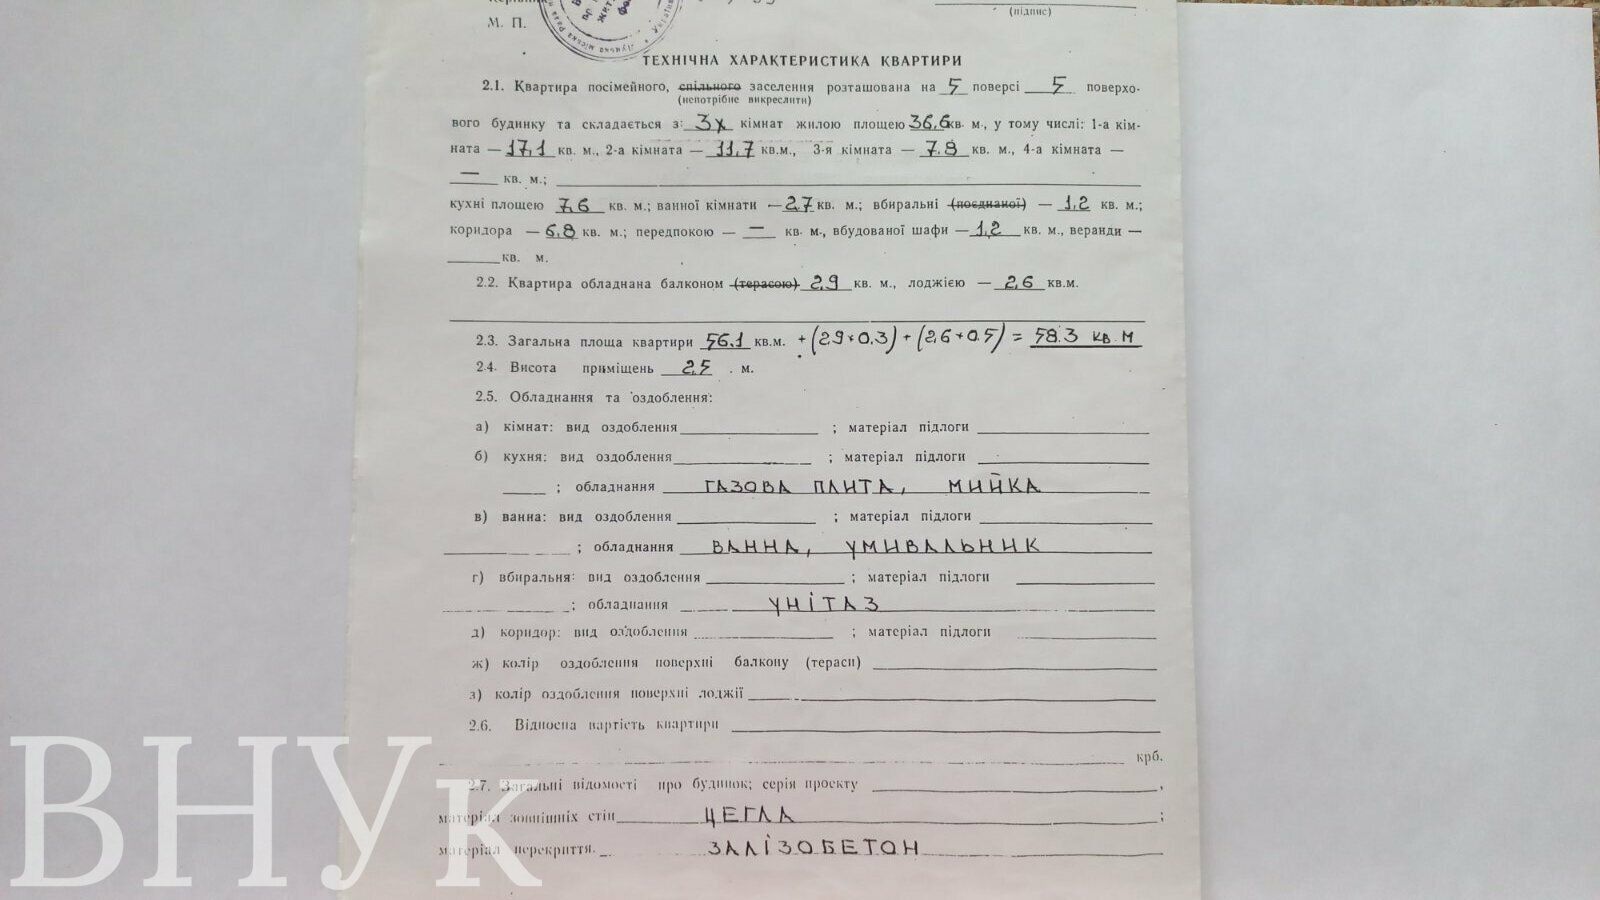 М. П.
(підпис)
ТЕХНІЧНА ХАРАКТЕРИСТИКА КВАРТИРИ
2.1. Квартира посімейного, спільного заселення розташована на 5 поверсі 5 поверхо-
(непотрібне викреслити)
вого будинку та складається з: 3х кімнат жилою площею 36,6 кв. м., у тому числі: 1-а кім-
ната — 17,1 кв. м., 2-а кімната — 11,7 кв.м., 3-я кімната — 7.8 кв. м., 4-а кімната —
— кв. м.;
кухні площею 7,6 кв. м.; ванної кімнати — 2,7 кв. м.; вбиральні (поєднаної) — 1,2 кв. м.;
коридора — 6,8 кв. м.; передпокою — — кв. м., вбудованої шафи — 1,2 кв. м., веранди —
кв. м.
2.2. Квартира обладнана балконом (терасою) 2,9 кв. м., лоджією — 2,6 кв.м.
2.3. Загальна площа квартири 56,1 кв.м. + (2,9*0.3) + (2,6*0.5) = 58.3 кв.м
2.4. Висота приміщень 2,5 . м.
2.5. Обладнання та оздоблення:
а) кімнат: вид оздоблення ; матеріал підлоги
б) кухня: вид оздоблення ; матеріал підлоги
; обладнання ГАЗОВА ПЛИТА, МИЙКА
в) ванна: вид оздоблення ; матеріал підлоги
; обладнання ВАННА, УМИВАЛЬНИК
г) вбиральня: вид оздоблення ; матеріал підлоги
; обладнання УНІТАЗ
д) коридор: вид оздоблення ; матеріал підлоги
ж) колір оздоблення поверхні балкону (тераси)
з) колір оздоблення поверхні лоджії
2.6. Відносна вартість квартири
крб.
2.7. Загальні відомості про будинок; серія проекту ,
матеріал зовнішніх стін ЦЕГЛА ;
матеріал перекриття. ЗАЛІЗОБЕТОН
ВНУк